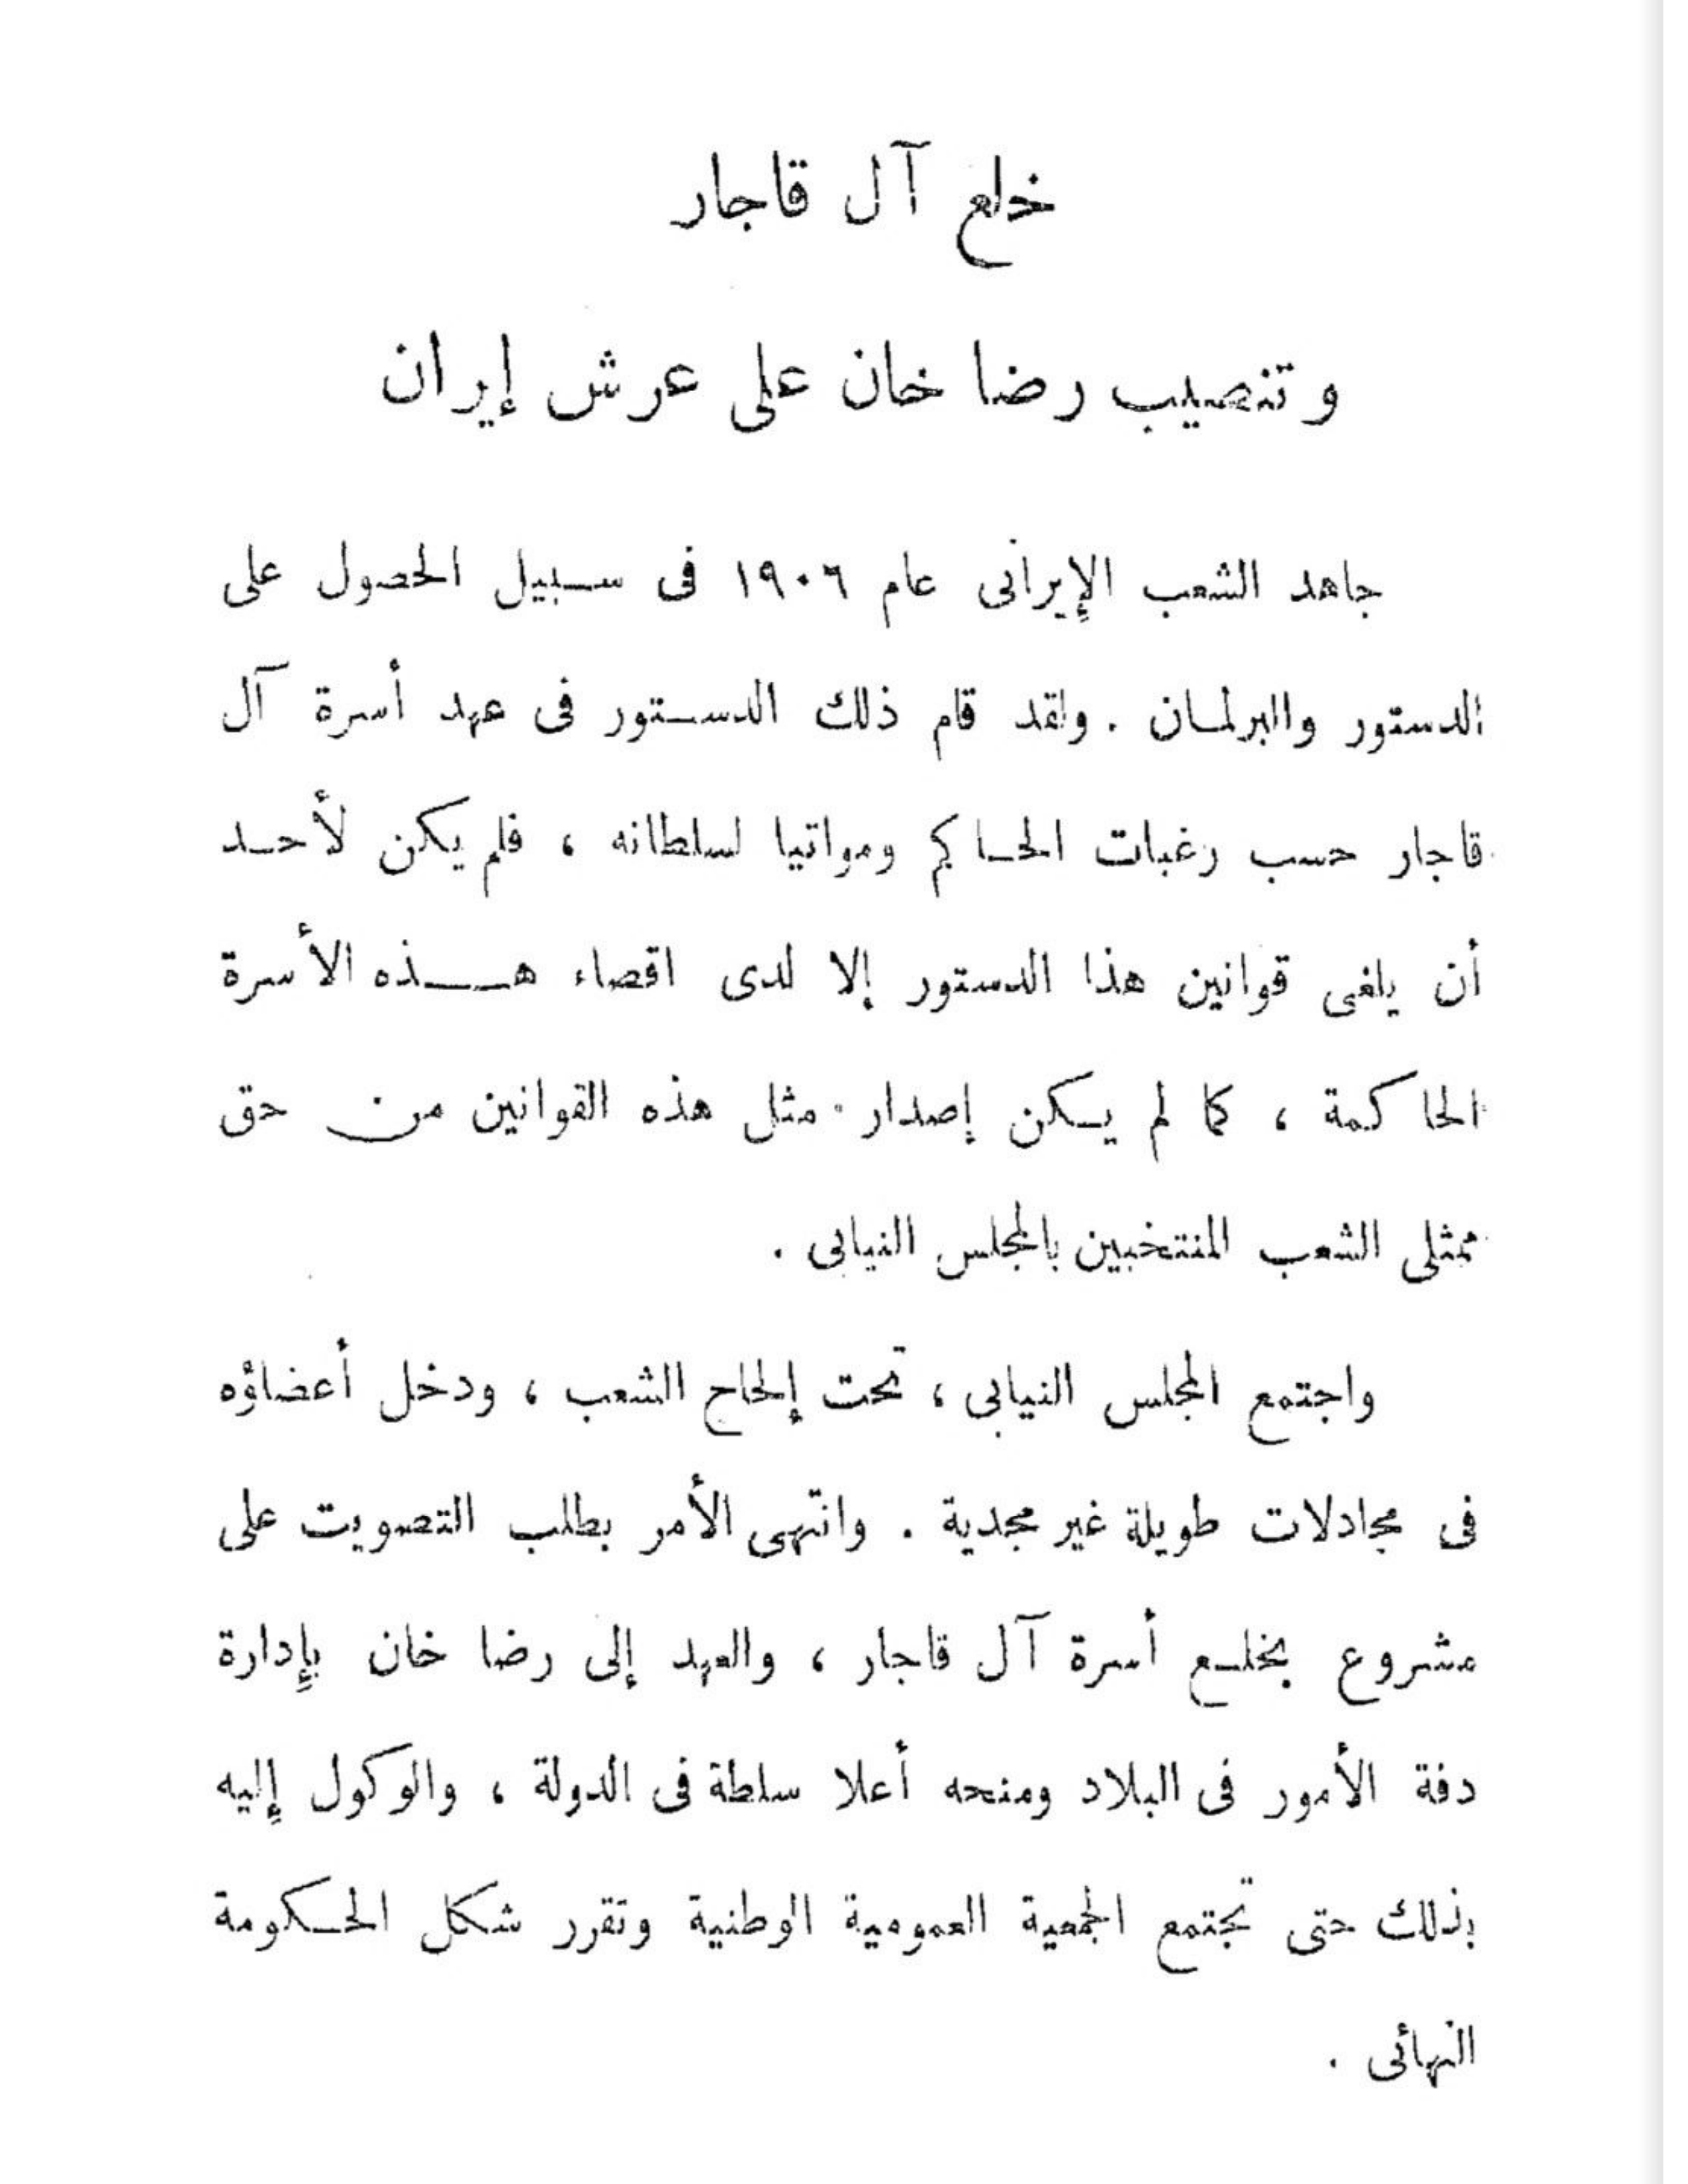 خلع آل قاجار
وتنصيب رضا خان على عرش إيران
جاهد الشعب الإيرانى عام ١٩٠٦ فى سبيل الحصول على
الدستور والبرلمان . ولقد قام ذلك الدستور فى عهد أسرة آل
قاجار حسب رغبات الحاكم ومواتيا لسلطانه ، فلم يكن لأحد
أن يلغى قوانين هذا الدستور إلا لدى اقصاء هذه الأسرة
الحاكمة ، كما لم يكن إصدار مثل هذه القوانين من حق
ممثلى الشعب المنتخبين بالمجلس النيابى .
واجتمع المجلس النيابى ، تحت إلحاح الشعب ، ودخل أعضاؤه
فى مجادلات طويلة غير مجدية . وانتهى الأمر بطلب التصويت على
مشروع بخلع أسرة آل قاجار ، والعهد إلى رضا خان بإدارة
دفة الأمور فى البلاد ومنحه أعلا سلطة فى الدولة ، والوكول إليه
بذلك حتى تجتمع الجمعية العمومية الوطنية وتقرر شكل الحكومة
النهائى .